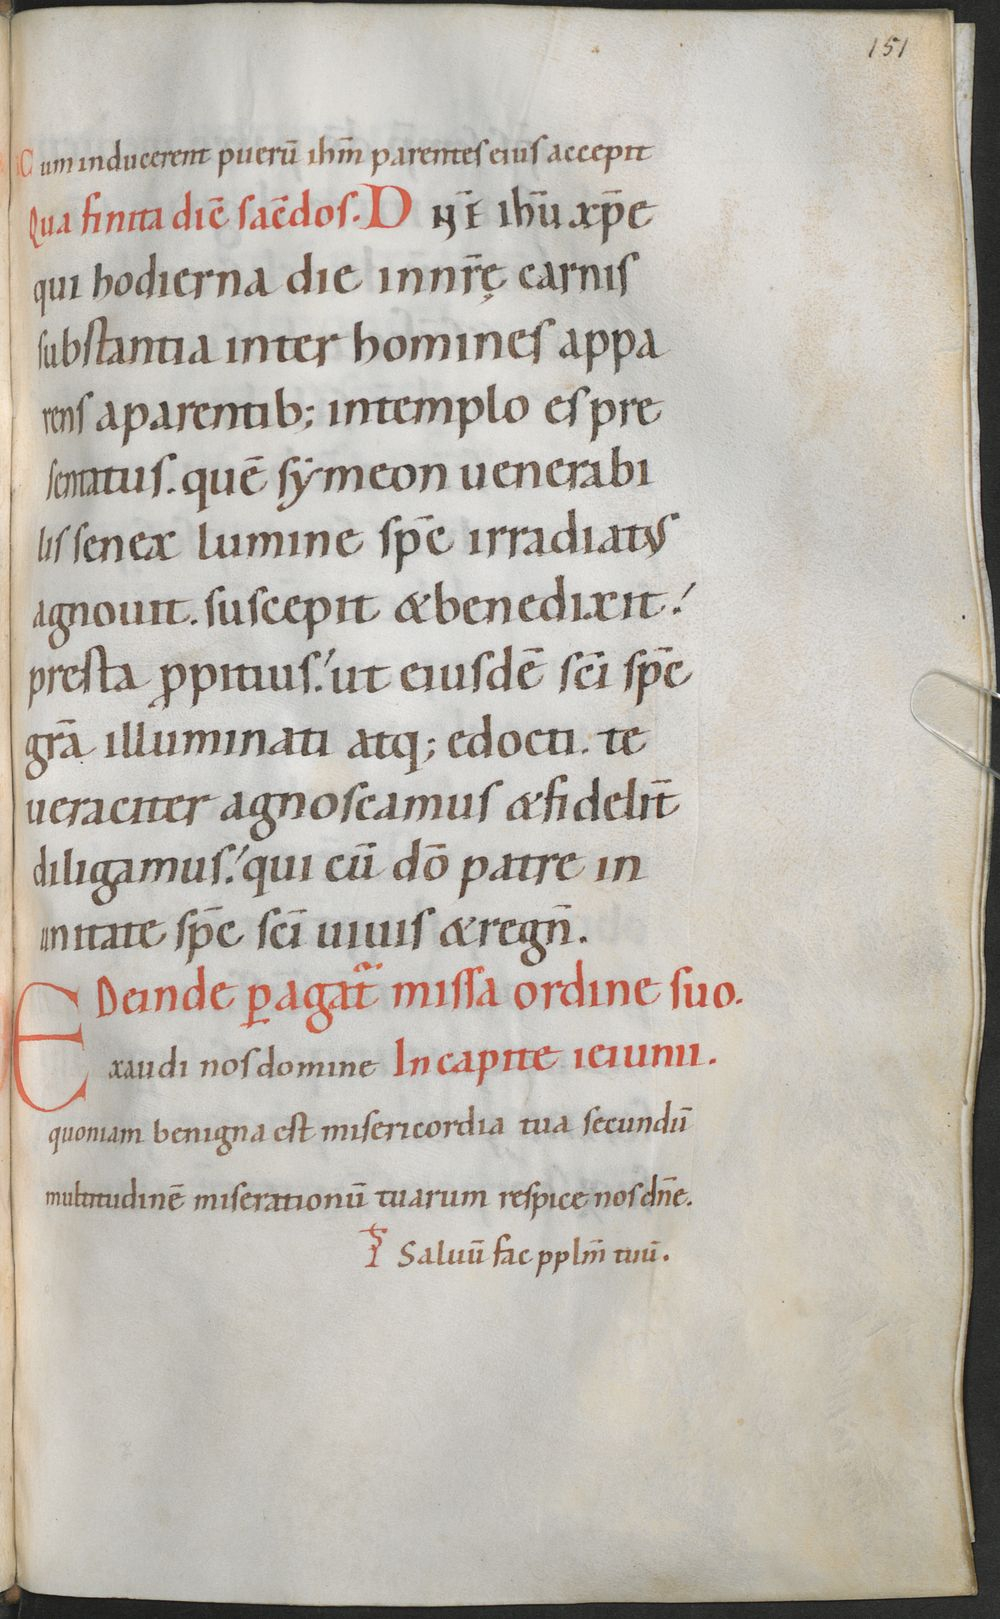 151
Cum inducerent puerū ihm̄ parentes eius accepit
Qua finita diē saēdos. D n̄i ihū xp̄e
qui hodierna die in nr̄ę carnis
substantia inter homines appa
rens aparentib; in templo es pre
sentatus. quē sẏmeon uenerabi
lis senex lumine sp̄c irradiatus
agnouit. suscepit & benedixit!
presta ꝓpitius! ut eiusdē sc̄i sp̄c
gr̄a illuminati atq; edocti. te
ueraciter agnoscamus & fidelit̄
diligamus! qui cū dō patre in
unitate sp̄c sc̄i uiuis & regn̄.
Deinde ꝑagat̄ missa ordine suo.
Exaudi nos domine In capite ieiunii.
quoniam benigna est misericordia tua secundū
multitudinē miserationū tuarum respice nos dn̄e.
ps Saluū fac pplm̄ tuū.